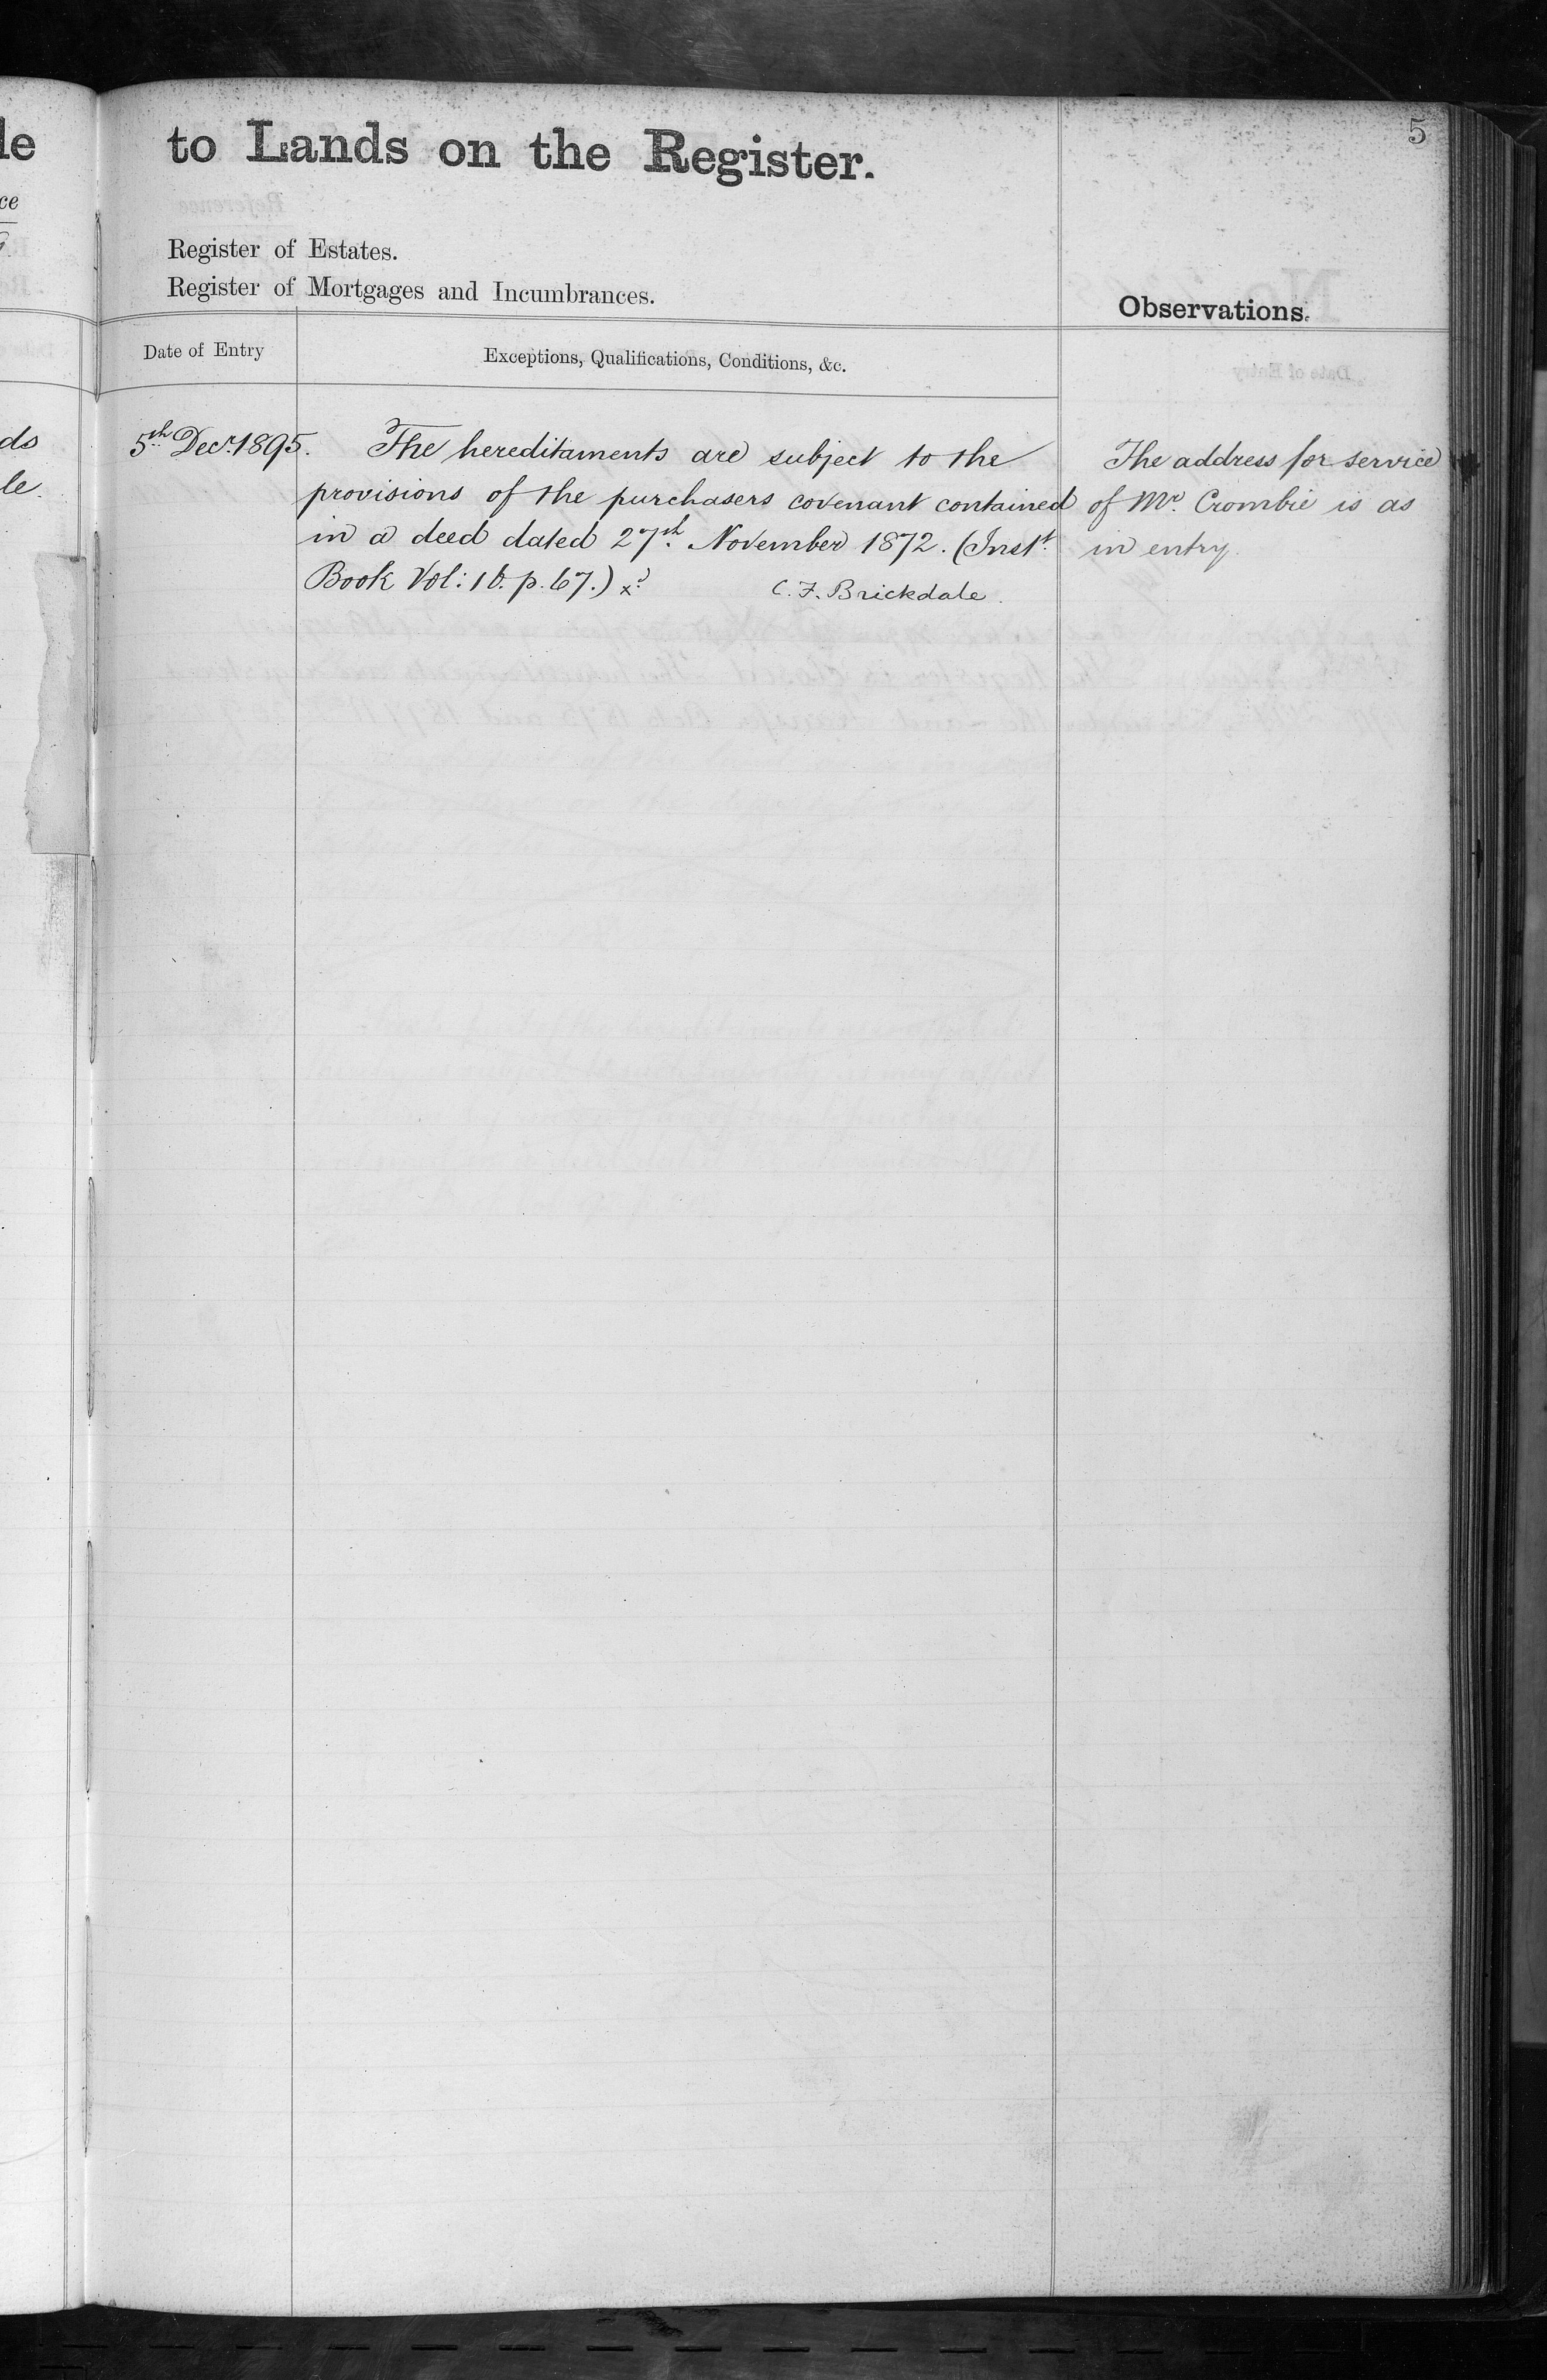 le
to Lands on the Register.
5
ce
Register of Estates.
Register of Mortgages and Incumbrances.
Observations.
Date of Entry
Exceptions, Qualifications, Conditions, &c.
ds
le.
5th Decr. 1895.
The hereditaments are subject to the
provisions of the purchasers covenant contained
in a deed dated 27th. November 1872. (Instt.
Book Vol: 16. p. 67.) xd
C. F. Brickdale.
The address for service
of Mr. Crombie is as
in entry.